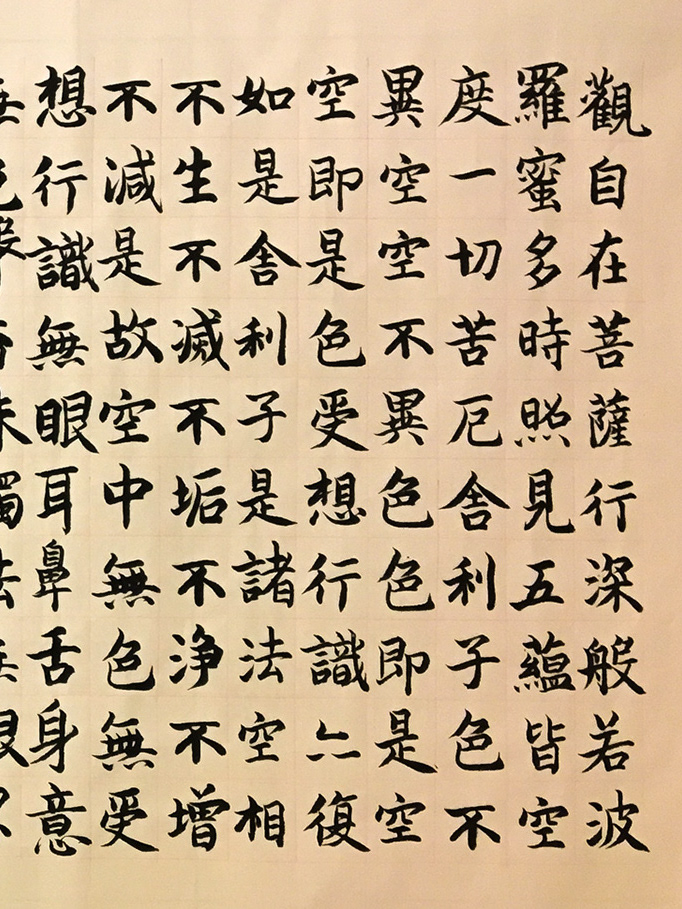 觀自在菩薩行深般若波
羅蜜多時照見五蘊皆空
度一切苦厄舎利子色不
異空空不異色色即是空
空即是色受想行識亦復
如是舎利子是諸法空相
不生不滅不垢不浄不増
不減是故空中無色無受
想行識無眼耳鼻舌身意